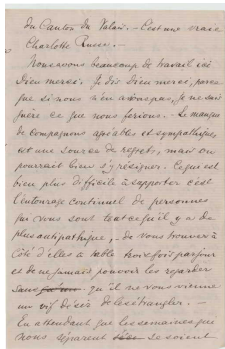 du Canton du Valais. — C'est une vraie
Charlotte Russe. —
Nous avons beaucoup de travail ici
Dieu merci. Je dis Dieu merci, parce
que si nous n'en avions pas, je ne sais
guère ce que nous ferions. Le manque
de compagnons agréables et sympathiques,
est une source de regrets, mais on
pourrait bien s'y résigner. Ce qui est
bien plus difficile à supporter c'est
l'entourage continuel de personnes
qui vous sont tout ce qu'il y a de
plus antipathique, — de vous trouver à
côté d'elles à table trois fois par jour
et de ne jamais pouvoir les regarder
sans qu'il ne vous vienne
un vif désir de les étrangler. —
En attendant que les semaines que
nous séparent se soient